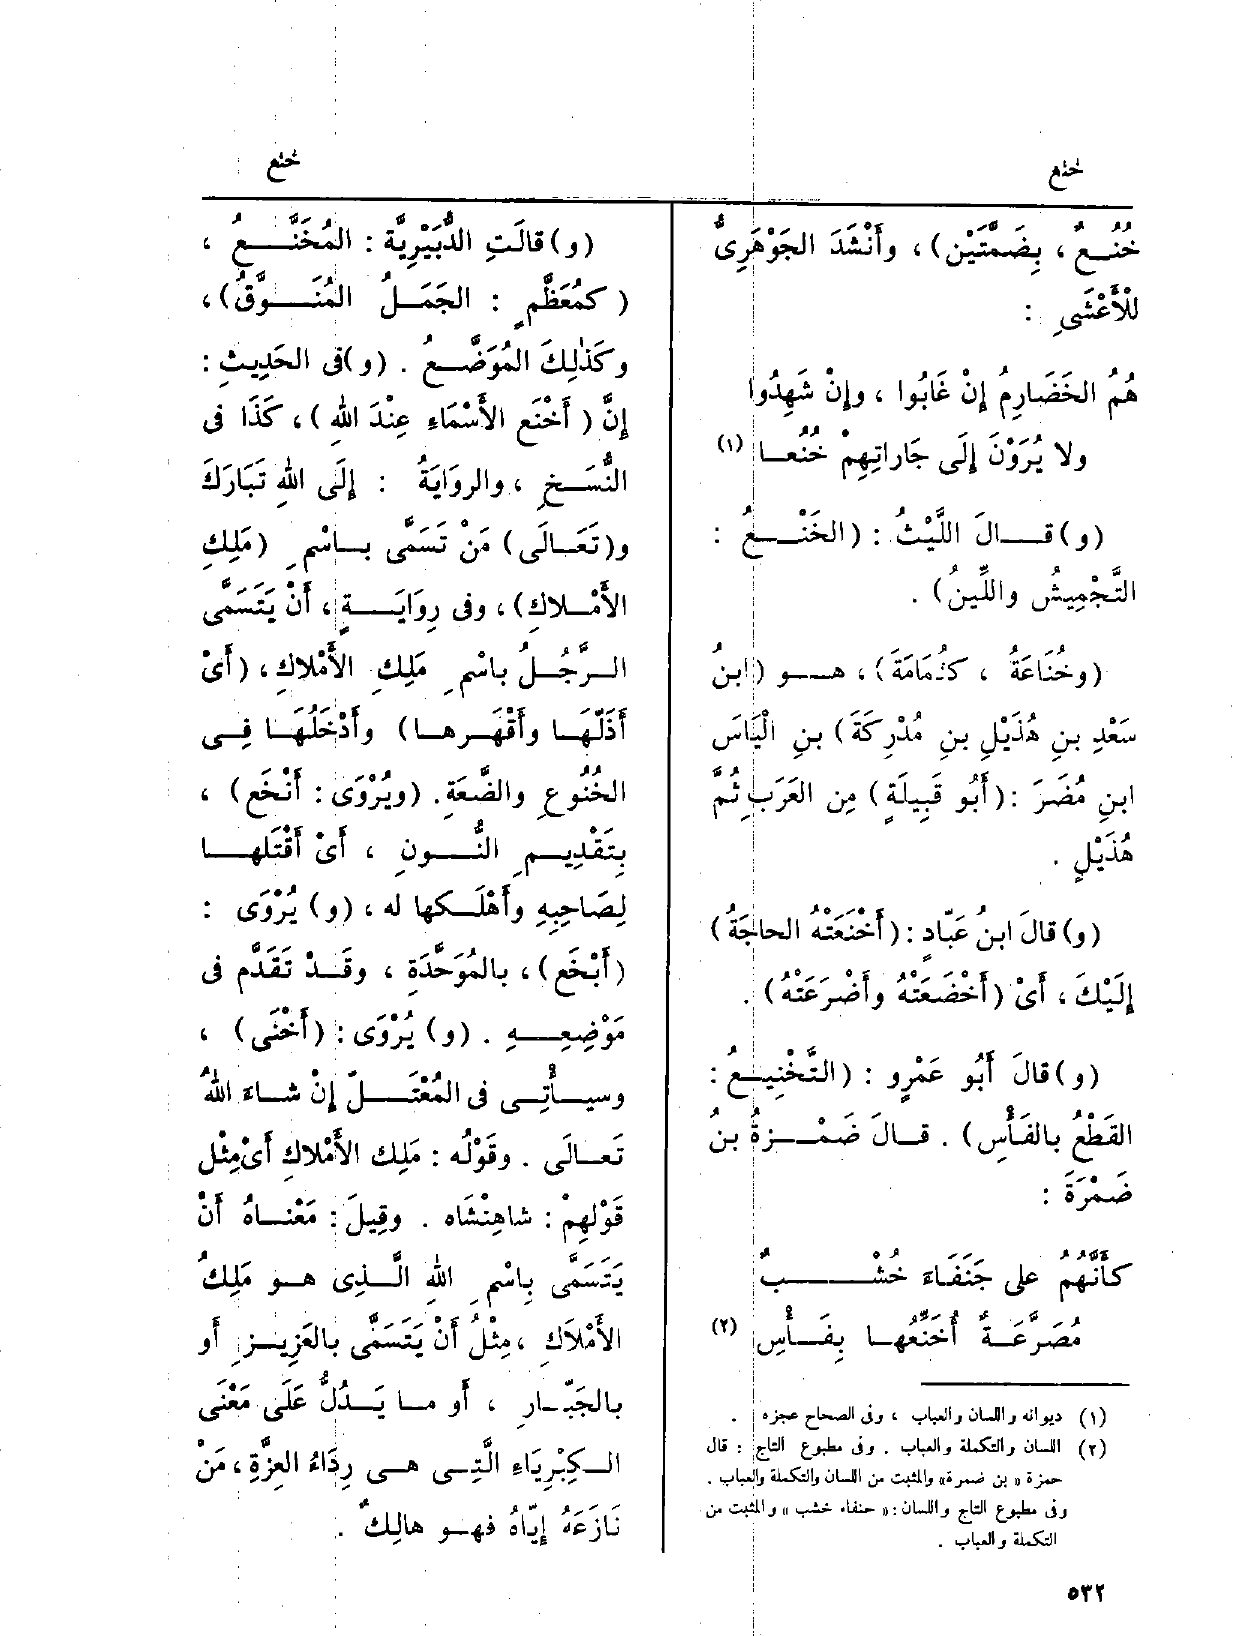 خنع
خنع
خُنُعٌ ، بِضَمَّتَيْن) ، وأَنْشَدَ الجَوْهَرِىُّ
لِلْأَعْشَى :
هُمُ الخَضَارِمُ إِنْ غَابُوا ، وإِنْ شَهِدُوا
ولا يُرَوْنَ إِلَى جَاراتِهِمْ خُنُعا (١)
(و) قالَ اللَّيْثُ : (الخَنْعُ :
التَّجْمِيشُ واللِّينُ) .
(وخُنَاعَةُ ، كثُمَامَةَ) ، هو (ابنُ
سَعْدِ بنِ هُذَيْلِ بنِ مُدْرِكَةَ) بنِ الْيَاسَ
ابنِ مُضَرَ : (أَبُو قَبِيلَةٍ) مِن العَرَبِ ثُمَّ
هُذَيْلٍ .
(و) قالَ ابنُ عَبّادٍ : (أَخْنَعَتْهُ الحاجَةُ)
إِلَيْكَ ، أَىْ (أَخْضَعَتْهُ وأَضْرَعَتْهُ) .
(و) قالَ أَبُو عَمْرٍو : (التَّخْنِيعُ :
القَطْعُ بالفَأْسِ) . قالَ ضَمْرَةُ بنُ
ضَمْرَةَ :
كأَنَّهُمُ على جَنَفَاءَ خُشْبٌ
مُصَرَّعَةٌ أُخَنِّعُها بِفَأْسِ (٢)
(١) ديوانه واللسان والعباب ، وفى الصحاح عجزه .
(٢) اللسان والتكملة والعباب . وفى مطبوع التاج : قال
حمزة «بن ضمرة» والمثبت من اللسان والتكملة والعباب .
وفى مطبوع التاج واللسان : «حنفاء خشب» والمثبت من
التكملة والعباب .
(و) قالَتِ الدُّبَيْرِيَّة : المُخَنَّعُ ،
(كمُعَظَّمٍ : الجَمَلُ المُنَوَّقُ) ،
وكَذٰلِكَ المُوَضَّعُ . (و) فى الحَدِيثِ :
إِنَّ (أَخْنَع الأَسْمَاءِ عِنْدَ اللهِ) ، كَذَا فى
النُّسَخِ ، والرِوَايَةُ : إِلَى اللهِ تَبَارَكَ
و(تَعَالَى) مَنْ تَسَمَّى باسْمِ (مَلِكِ
الأَمْلاكِ) ، وفى رِوَايَةٍ ، أَنْ يَتَسَمَّى
الرَّجُلُ باسْمِ مَلِكِ الأَمْلاكِ ، (أَىْ
أَذَلَّهَا وأَقْهَرها) وأَدْخَلُهَا فِى
الخُنُوعِ والضَّعَةِ . (ويُرْوَى : أَنْخَع) ،
بِتَقْدِيمِ النُّونِ ، أَىْ أَقْتَلها
لِصَاحِبِهِ وأَهْلَكها له ، (و) يُرْوَى :
(أَبْخَع) ، بالمُوَحَّدَةِ ، وقَدْ تَقَدَّم فى
مَوْضِعِهِ . (و) يُرْوَى : (أَخْنَى) ،
وسيأْتِى فى المُعْتَلّ إِنْ شاءَ اللهُ
تَعالَى . وقَوْلُه : مَلِك الأَمْلاكِ أَىْ مِثْل
قَوْلِهِمْ : شاهِنْشَاه . وقِيلَ : مَعْناهُ أَنْ
يَتَسَمَّى بِاسْمِ اللهِ الَّذِى هو مَلِكُ
الأَمْلَاكِ ، مِثْلُ أَنْ يَتَسَمَّى بالعَزِيزِ أَو
بالجَبّارِ ، أَو ما يَدُلُّ عَلَى مَعْنَى
الكِبْرِيَاءِ الَّتِى هى رِدَاءُ العِزَّةِ ، مَنْ
نَازَعَهُ إِيّاهُ فهو هالِكٌ .
٥٣٢